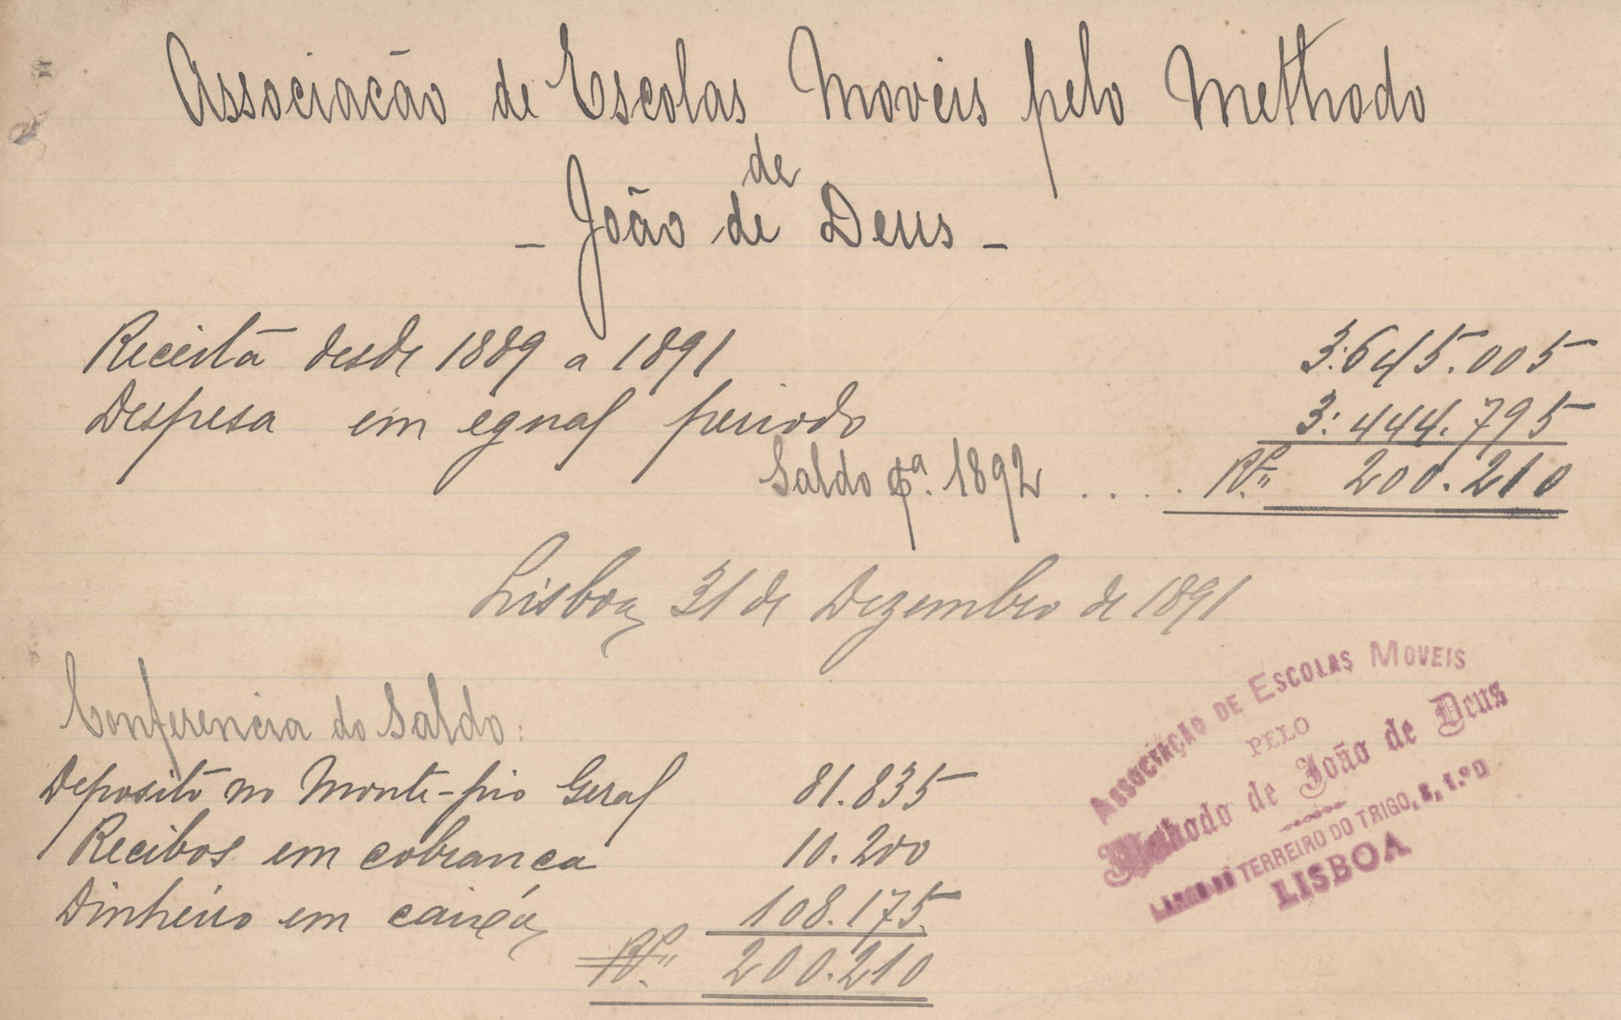 Associacão de Escolas Moveis pelo Methodo
de
- João de Deus -
Receita desde 1889 a 1891 3:645.005
Despesa em egual periodo 3:444.795
Saldo pª. 1892 .... Rs. 200.210
Lisboa, 31 de Dezembro de 1891
Conferencia do Saldo:
Deposito no Monte-pio Geral 81.835
Recibos em cobranca 10.200
Dinheiro em caixa, 108.175
Rs. 200.210
ASSOCIAÇÃO DE ESCOLAS MOVEIS
PELO
Methodo de João de Deus
LARGO DO TERREIRO DO TRIGO, 8, 1.º D
LISBOA